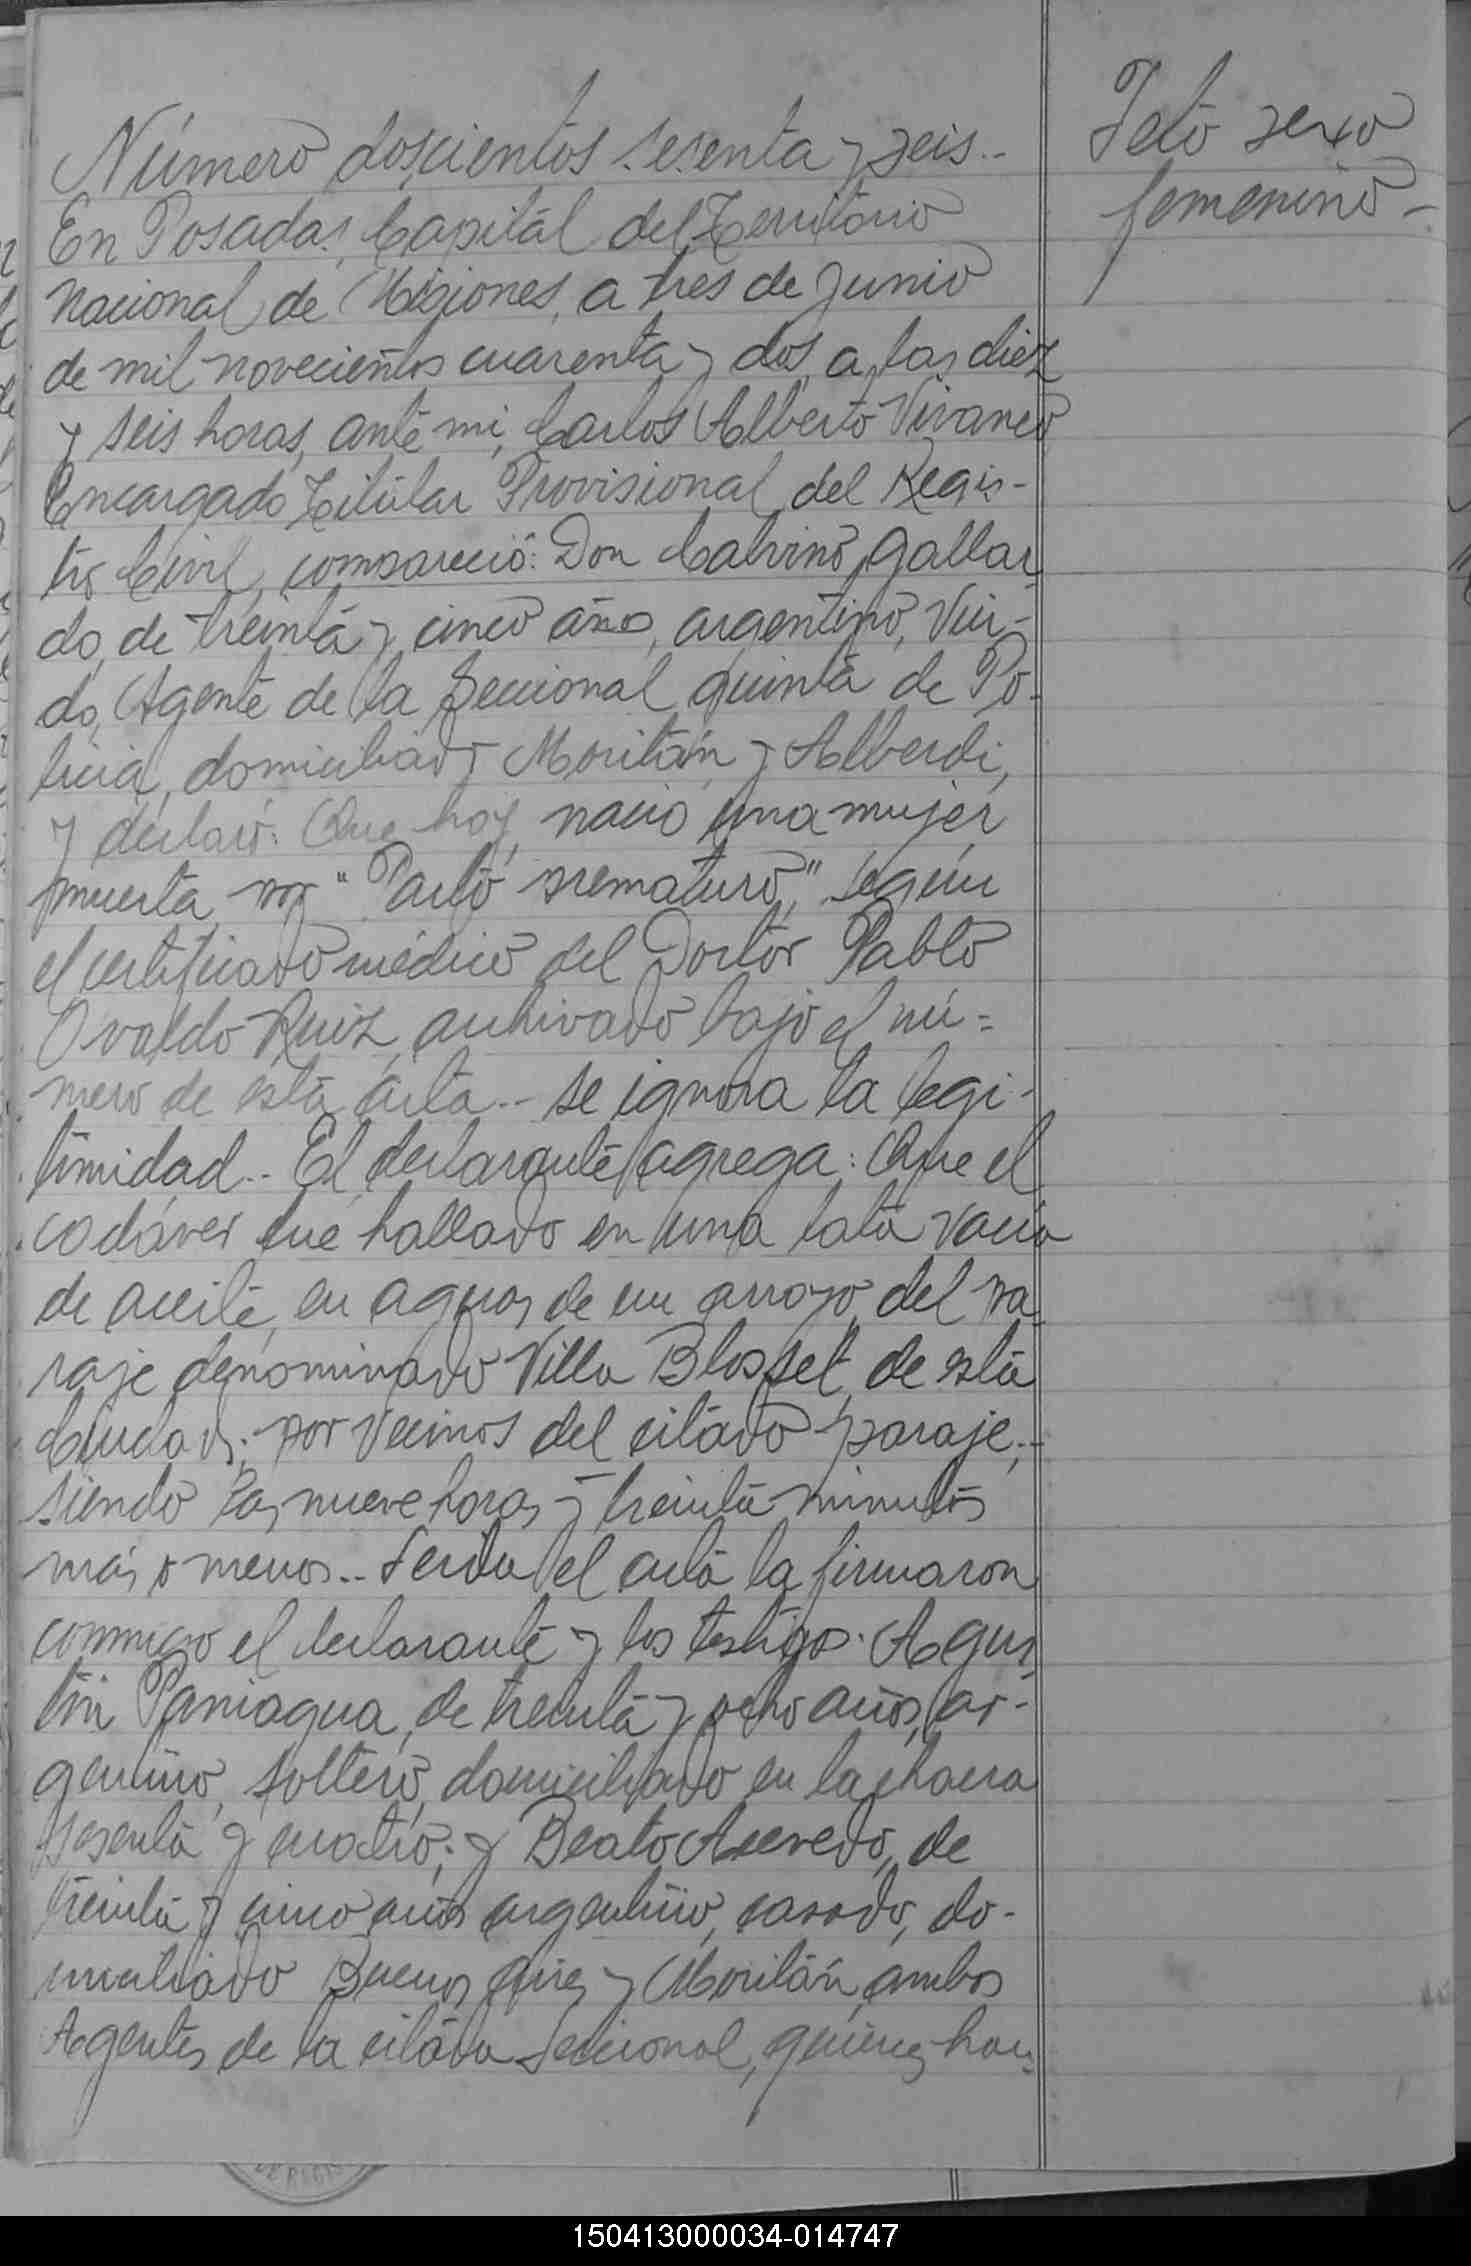 Número doscientos sesenta y seis.-
En Posadas, Capital del Territorio
Nacional de Misiones, a tres de Junio
de mil novecientos cuarenta y dos, a las diez
y seis horas, ante mi, Carlos Alberto Vivanco
Encargado Titular Provisional del Regis-
tro Civil, compareció: Don Calvino Gallar
do, de treinta y cinco años, argentino, Viu-
do, Agente de la Seccional quinta de Po-
licia, domiciliado Moritán y Alberdi,
y declaró: Que hoy, nació una mujer
muerta por "Parto prematuro," según
el certificado médico del Doctor Pablo
Ovaldo Ruiz, archivado bajo el nú=
mero de esta acta.- Se ignora la legi-
timidad.- El declarante agrega: Que el
cadáver fué hallado en una lata vacia
de aceite, en aguas de un arroyo del pa
raje denominado Villa Blosset, de esta
Ciudad; por vecinos del citado paraje;-
siendo las nueve horas y treinta minutos
más o menos.- Leida el acta la firmaron
conmigo el declarante y los testigos: Agus
tin Paniagua, de treinta y ocho años, ar-
gentino, soltero, domiciliado en la chacra
sesenta y cuatro; y Beato Acevedo, de
treinta y cinco años argentino, casado, do-
miciliado Buenos Aires y Moritán, ambos
Agentes de la citada Seccional, quienes han
Feto sexo
femenino-
DE REGIS
150413000034-014747